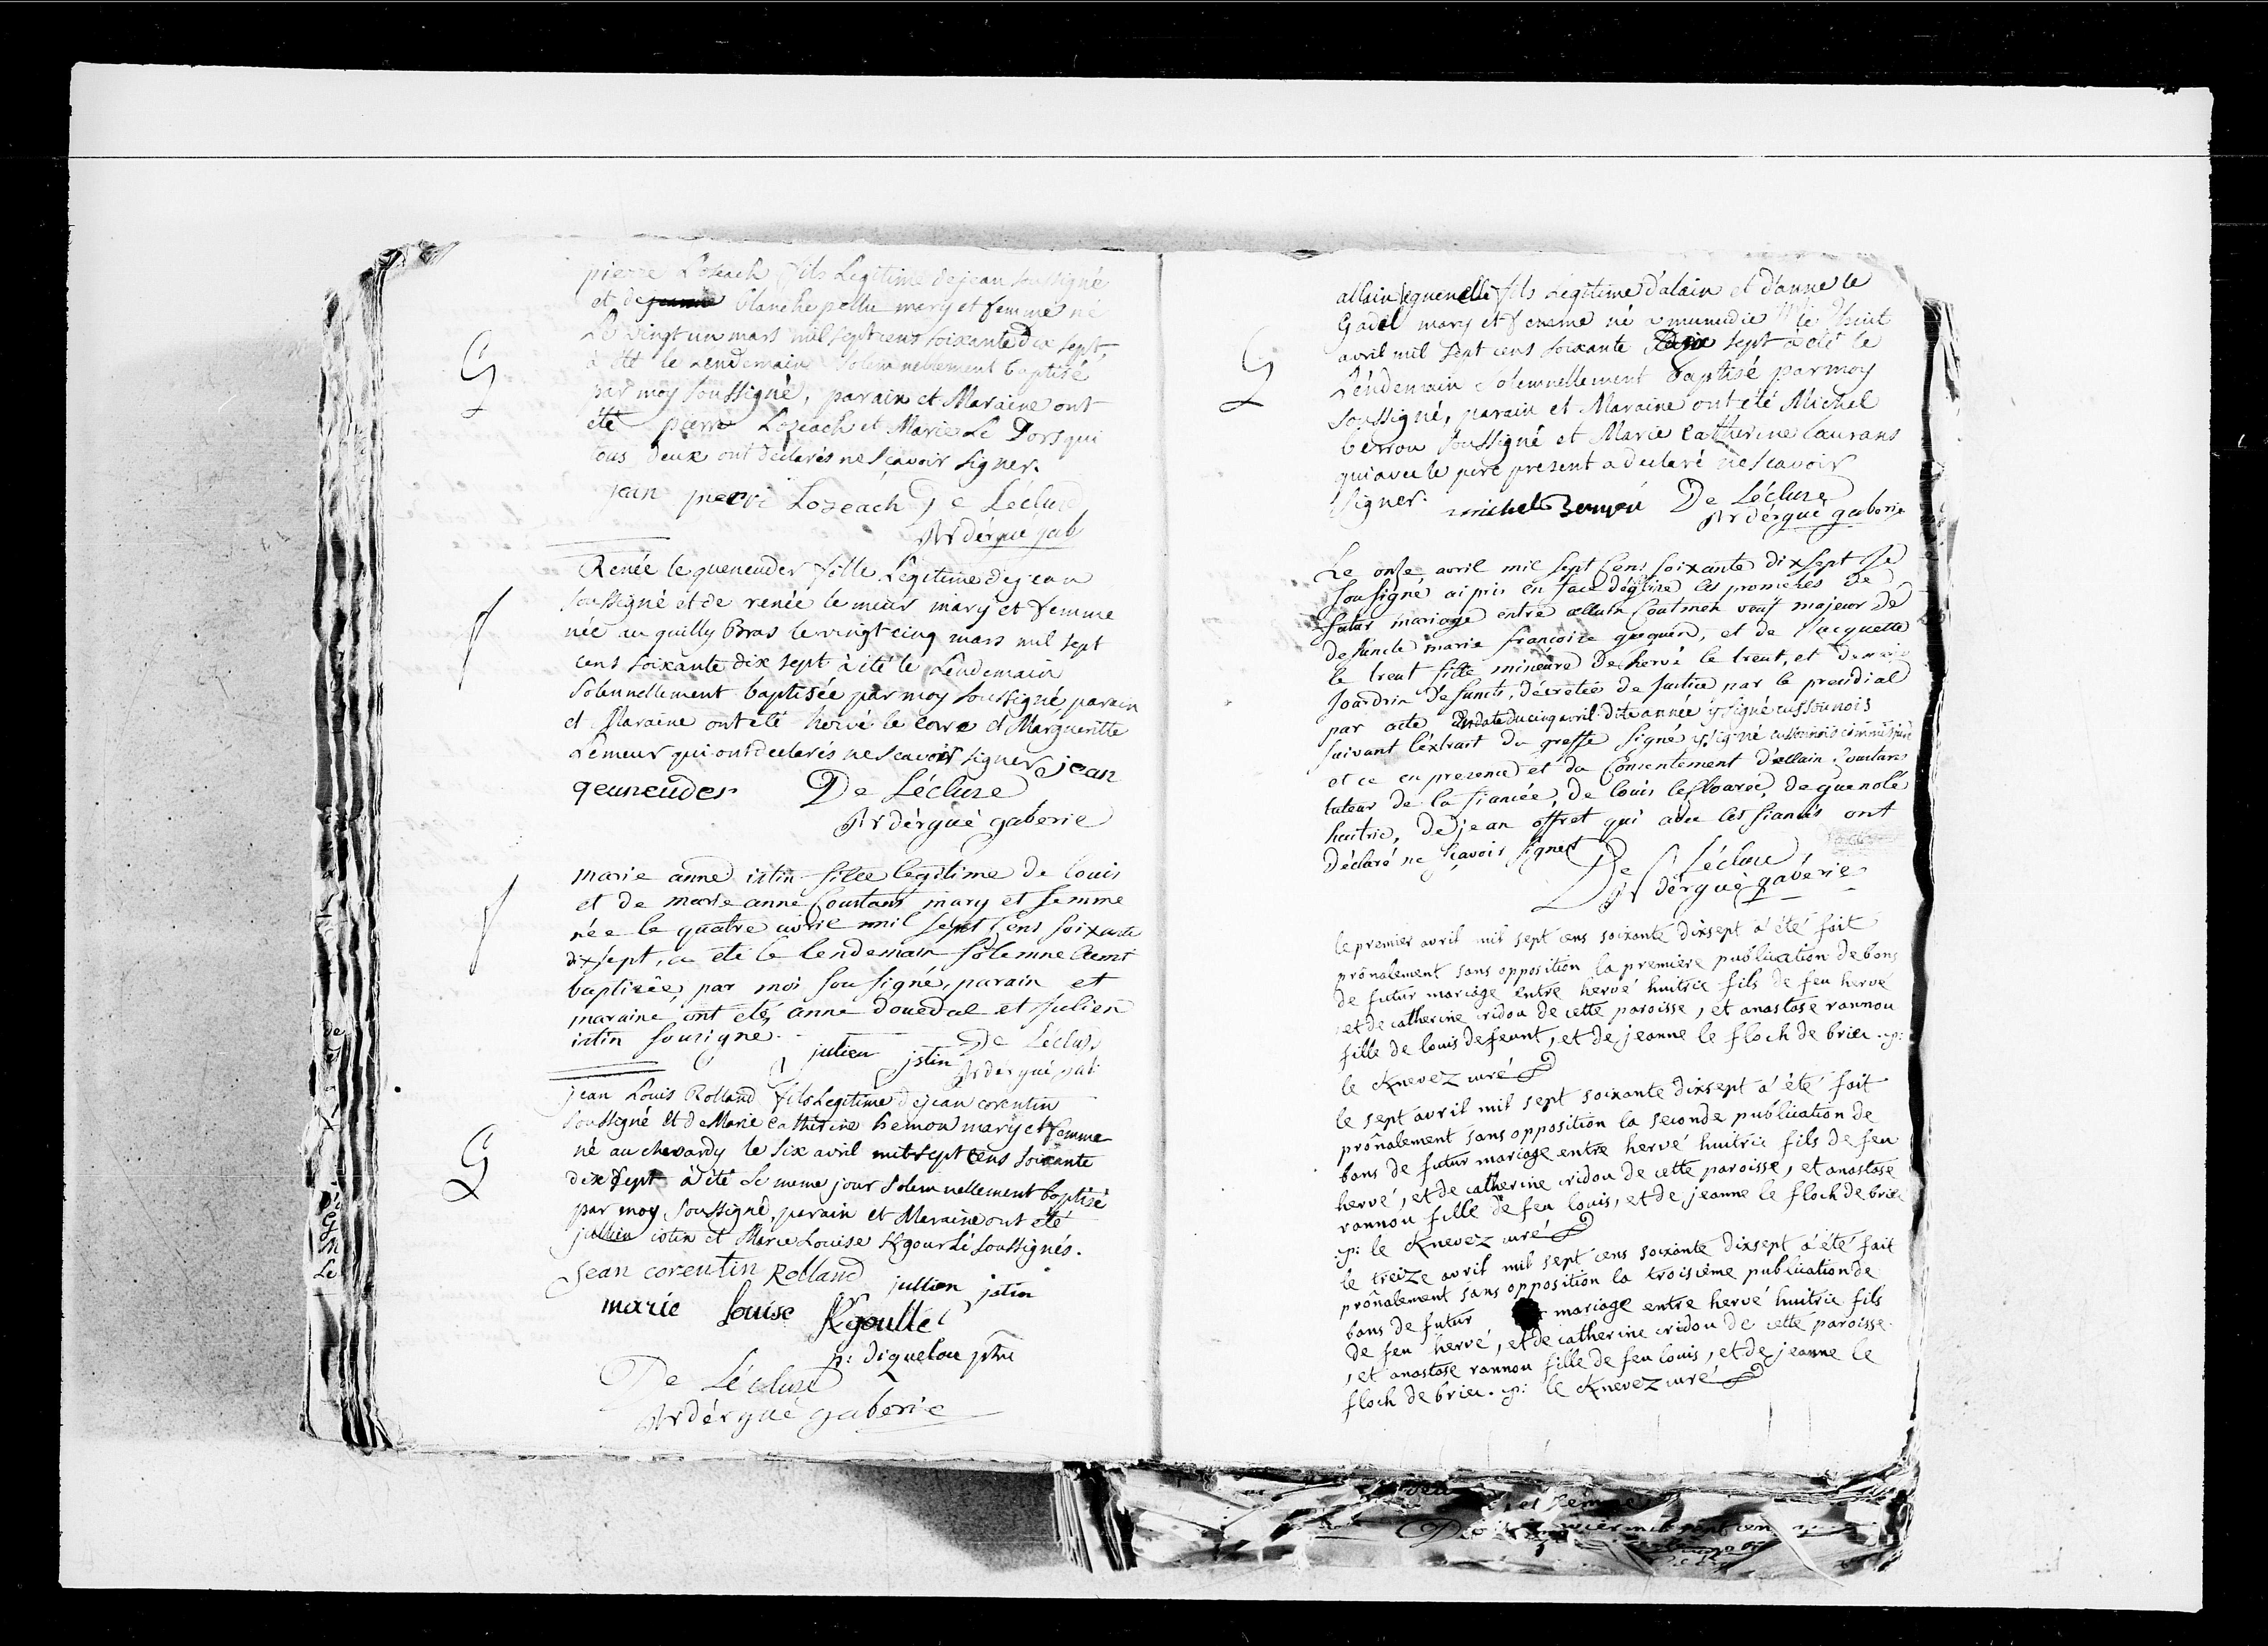 pierre Lozeach fils Legitime de jean soussigné
et de jeanne blanche pellu mary et femme né
Le vingt un mars mil sept cens soixante dix sept,
à été le Lendemain solemnellement baptisé
par moy soussigné, parain et Maraine ont
été pierre Lozeach et Marie Le Dors qui
tous deux ont declarés ne sçavoir signer.
jean pierre Lozeach De Lécluse
Ar dérgué gab
G
Renée le queneuder fille Legitime de jean
soussigné et de renée le meur mary et femme
née au quilly Bras le vingt cinq mars mil sept
cens soixante dix sept à été le Lendemain
solennellement baptisée par moy soussigné, parain
et Maraine ont été hervé le corre et Margueritte
Lemeur qui ont declarés ne scavoir signer jean
qeuneuder De Lécluse
Ar dérgué gaberie
f
marie anne istin fille legitime de louis
et de marie anne Coustans mary et femme
née le quatre avril mil sept Cens soixante
dix sept, a été le lendemain solemnellemt
baptisée, par moi sousigné, parain et
maraine ont été, anne douedal et julien
istin sousigne.
julien istin De Lécluse
Ar dérgué gab
f
jean Louis Rolland fils Legitime de jean corentin
soussigné et de Marie Catherine hemon mary et femme
né au chevardy le six avril mil sept cens soixante
dix sept à été Le meme jour solemnellement baptisé
par moy soussigné, parain et Maraine ont été
jullien istin et Marie Louise Kgourlé soussignés.
G
Jean corentin Rolland jullien istin
marie louise Kgoulle
p: diquelou ptre
De Lécluse
Ar dérgué gaberie
allain quenelle fils Legitime d'alain et d'anne le
Gadal mary et femme né a munudic le huit
avril mil sept cens soixante dix sept à été le
Lendemain solemnellement baptisé par moy
soussigné, parain et Maraine ont été Michel
berrou soussigné et Marie Catherine Caurans
qui avec le pere present a declaré ne scavoir
signer. michel De Lécluse
Ar dérgué gaberie
G
Le onse avril mil sept Cens soixante dix sept Je
sousigné ai pris en face d'église les promeses de
futur mariage entre allain Coatmen veuf majeur de
defuncte marie françoise gueguen, et de Jacquette
le treut fille mineure de hervé le treut, et de marie
Joardrin defuncts, décrétée de Justice par le presidial
par acte en date du cinq avril dite année y signé cussonnois
suivant l'extrait du greffe signé y signé cussonnois commis juré
et ce en presence et du Consentement d'allain
tuteur de la fiancée, de louis lefloarec, de guenolé
huitric, de jean offret qui avec les fiancés ont
Déclaré ne sçavoir signer
De Lécluse
Ar dérgué gabérie
le premier avril mil sept cens soixante dixsept a été fait
prônalement sans opposition la premiere publication de bans
de futur mariage entre hervé huitric fils de feu hervé
et de catherine cridou de cette paroisse, et anastase rannou
fille de louis defeunt, et de jeanne le floch de briec. p:
le Knevez curé
le sept avril mil sept soixante dixsept a été fait
prônalement sans opposition la seconde publication de
bans de futur mariage entre hervé huitric fils de feu
hervé, et de catherine cridou de cette paroisse, et anastase
rannou fille de feu louis, et de jeanne le floch de briec
p: le Knevez curé
le treize avril mil sept cens soixante dixsept a été fait
prônalement sans opposition la troisieme publication de
bans de futur mariage entre hervé huitric fils
de feu hervé, et de catherine cridou de cette paroisse
, et anastase rannou fille de feu louis, et de jeanne le
floch de briec. p: le Knevez curé